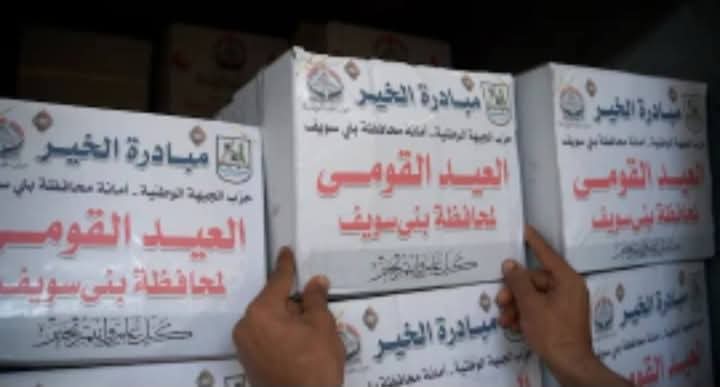 مبادرة الخير
حزب الجبهة الوطنية - أمانة محافظة بني سويف
العيد القومى
لمحافظة بنى سويف
كل عام وانتم بخير
مبادرة الخير
حزب الجبهة الوطنية - أمانة محافظة بني سويف
العيد القومى
لمحافظة بنى سويف
كل عام وانتم بخير
مبادرة الخير
حزب الجبهة الوطنية - أمانة محافظة بني سويف
العيد القومى
لمحافظة بنى سويف
كل عام وانتم بخير
مبادرة الخير
حزب الجبهة الوطنية - أمانة محافظة بني سويف
مبادرة الخير
حزب الجبهة الوطنية